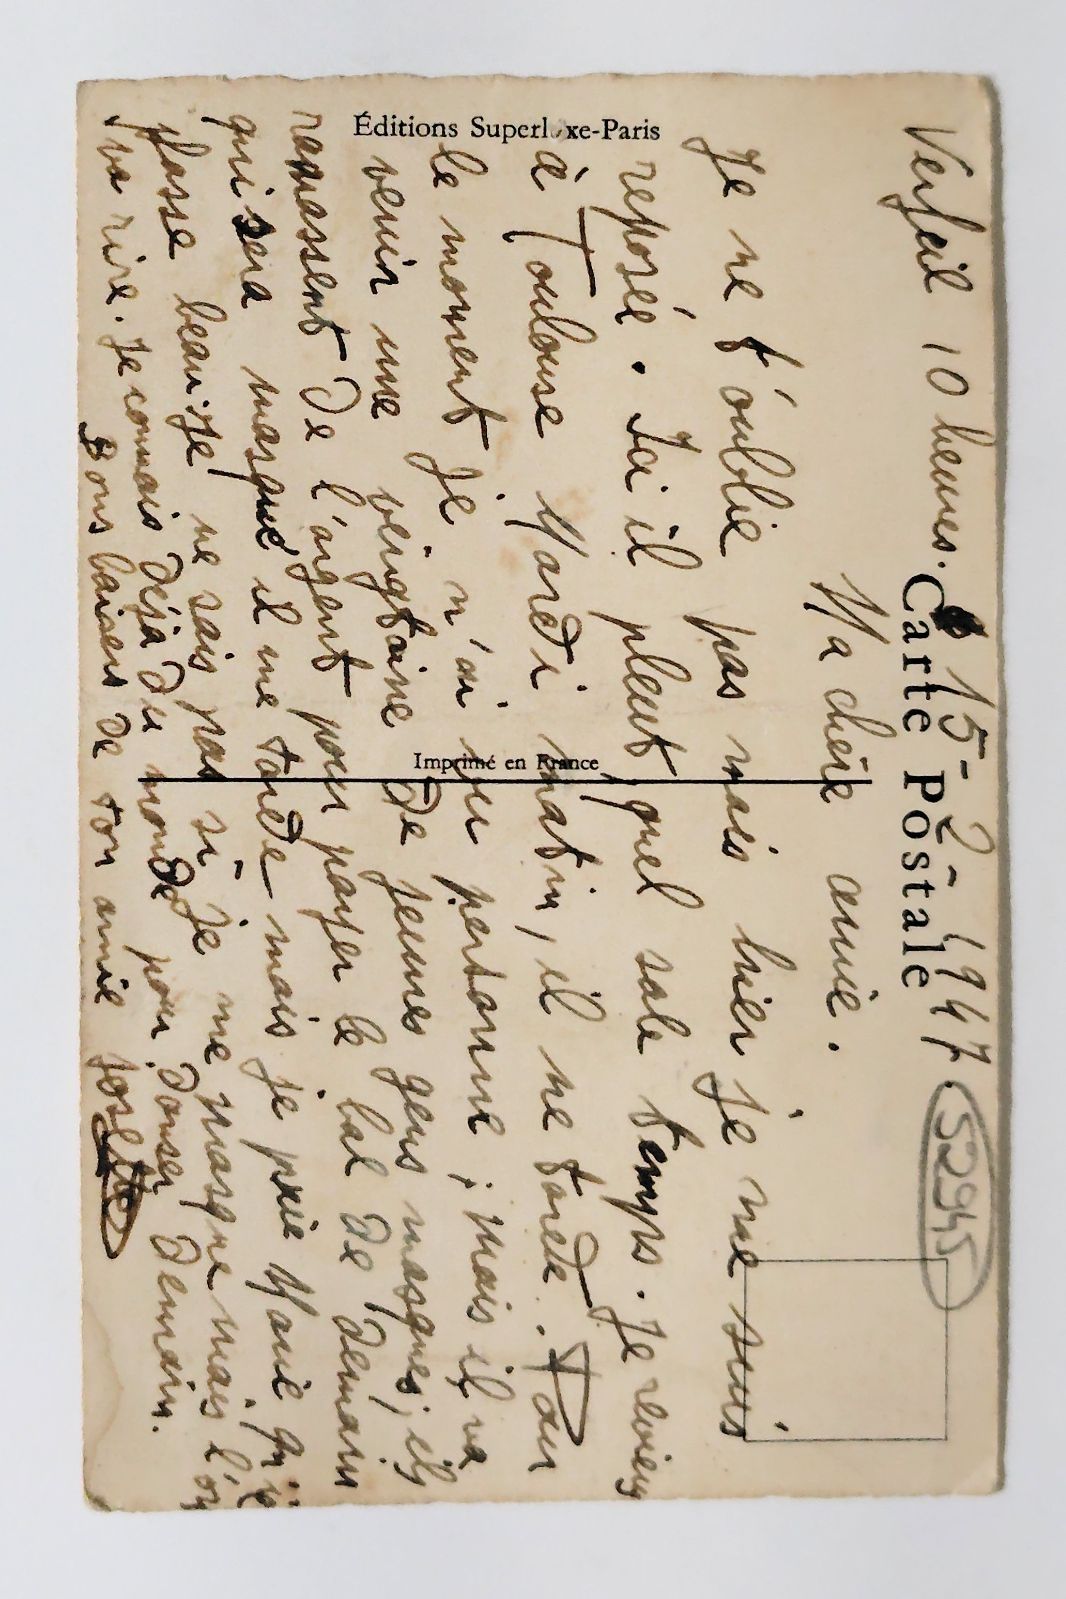 Verfeil 10 heures. 15-2-1947.
52945
Carte Postale
Ma chère amie.
Je ne t'oublie pas mais hier je me suis
reposée. Ici il pleut, quel sale temps. Je reviens
à Toulouse Mardi matin, il me tarde. Pour
le moment je n'ai vu personne ; mais il va
venir une vingtaine de jeunes gens masqués, ils
ramassent de l'argent pour payer le bal de demain
qui sera masqué il me tarde mais je prie Marie qu'il
fasse beau. Je ne sais pas si je me masque mais l'on
va rire. Je connais déjà du monde pour danser demain.
Bons baisers de ton amie Josette
Éditions Superluxe-Paris
Imprimé en France